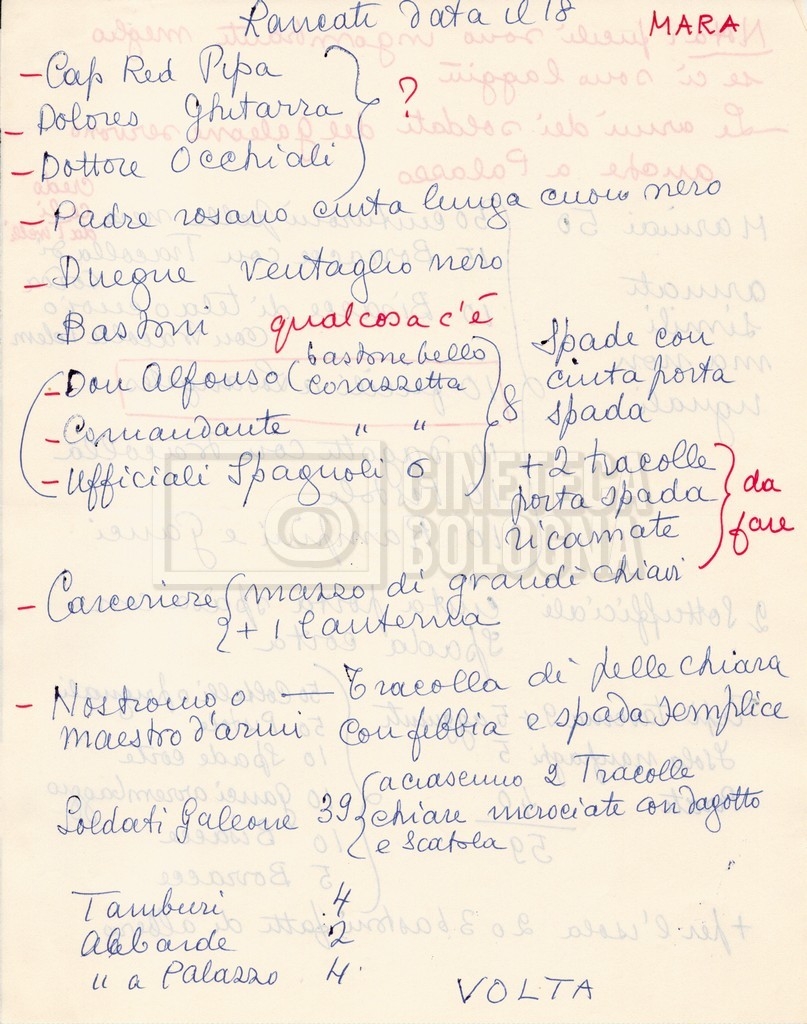 Rancati data il 18
MARA
- Cap Red Pipa
- Dolores Ghitarra
- Dottore Occhiali
?
- Padre rosario cinta lunga cuoio nero
- Duegne ventaglio nero
Bastoni qualcosa c'è
- Don Alfonso (bastone bello
corazzetta
- Comandante " "
- Ufficiali Spagnoli 6
8
Spade con
cinta porta
spada
+ 2 tracolle
porta spada
ricamate
da
fare
CINETECA
BOLOGNA
- Carceriere mazzo di grandi chiavi
+ 1 lanterna
- Nostromo o — Tracolla di pelle chiara
maestro d'armi con fibbia e spada semplice
Soldati Galeone 39
a ciascuno 2 Tracolle
chiare incrociate con dagotto
e scatola
Tamburi 4
Alabarde 2
" a Palazzo 4
VOLTA